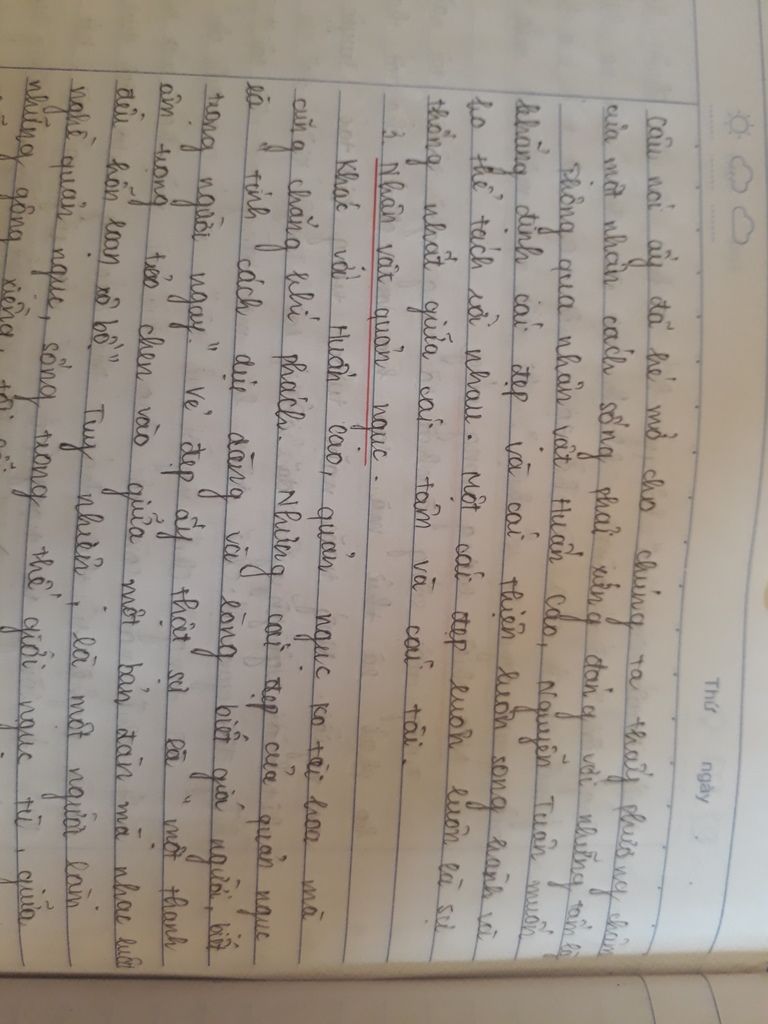 Thứ ngày
câu nói ấy đã hé mở cho chúng ta thấy phương châm
của một nhân cách sống phải xứng đáng với những tấm lò
Thông qua nhân vật Huấn Cao, Nguyễn Tuân muốn
khẳng định cái đẹp và cái thiện luôn song hành và
ko thể tách rời nhau. Một cái đẹp luôn luôn là sự
thống nhất giữa cái tâm và cái tài.
3. Nhân vật quản ngục.
Khác với Huấn Cao, quản ngục ko tài hoa mà
cũng chẳng khí phách. Nhưng cái đẹp của quản ngục
là tính cách dịu dàng và lòng biết giá người, biết
trọng người ngay." Vẻ đẹp ấy thật sự là "một thanh
âm trong trẻo chen vào giữa một bản đàn mà nhạc luật
đều hỗn loạn xô bồ" Tuy nhiên, là một người làm
nghề quản ngục, sống trong thế giới ngục tù, giữa
những gông xiềng, tội